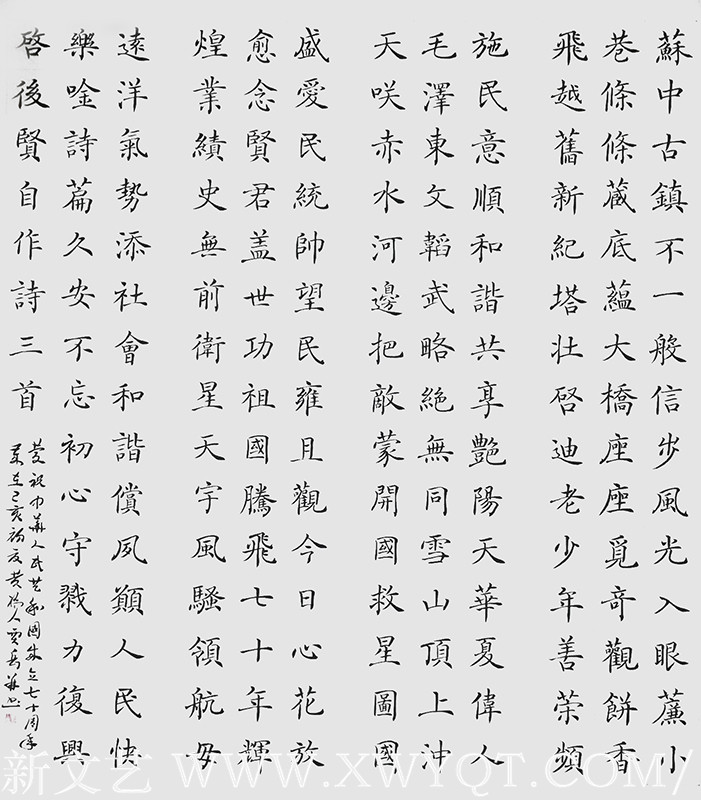 蘇中古鎮不一般信步風光入眼薕小
巷條條蔵底蘊大橋座座覓奇觀餅香
飛越舊新紀塔壯啓迪老少年善荣頻
施民意順和諧共享艷陽天華夏偉人
毛澤東文韜武略絕無同雪山頂上沖
天咲赤水河邊把敵蒙開國救星圖國
盛愛民統帥望民雍且觀今日心花放
愈念賢君盖世功祖國騰飛七十年輝
煌業績史無前衛星天宇風騷領航毋
遠洋氣勢添社會和諧償夙顚人民快
樂唫詩篇久安不忘初心守戮力復興
啓後賢自作詩三首
慶祝中華人民共和國成立七十周年
歲在己亥初夏黄橋人
新文艺 WWW.XWYQT.COM/